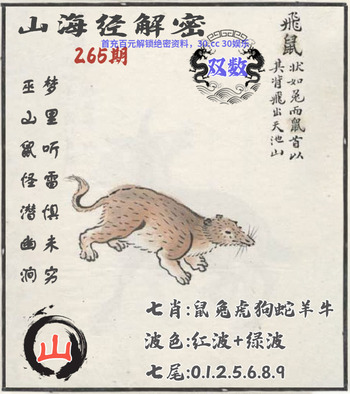 山海经解密
首充百元解锁绝密资料，30.cc 30娱乐
265期
双数
飛鼠
状如兔而鼠首以
其背飛出天池山
梦里听雷惧未穷
巫山鼠怪潜幽涧
山
七肖:鼠兔虎狗蛇羊牛
波色:红波+绿波
七尾:0.1.2.5.6.8.9